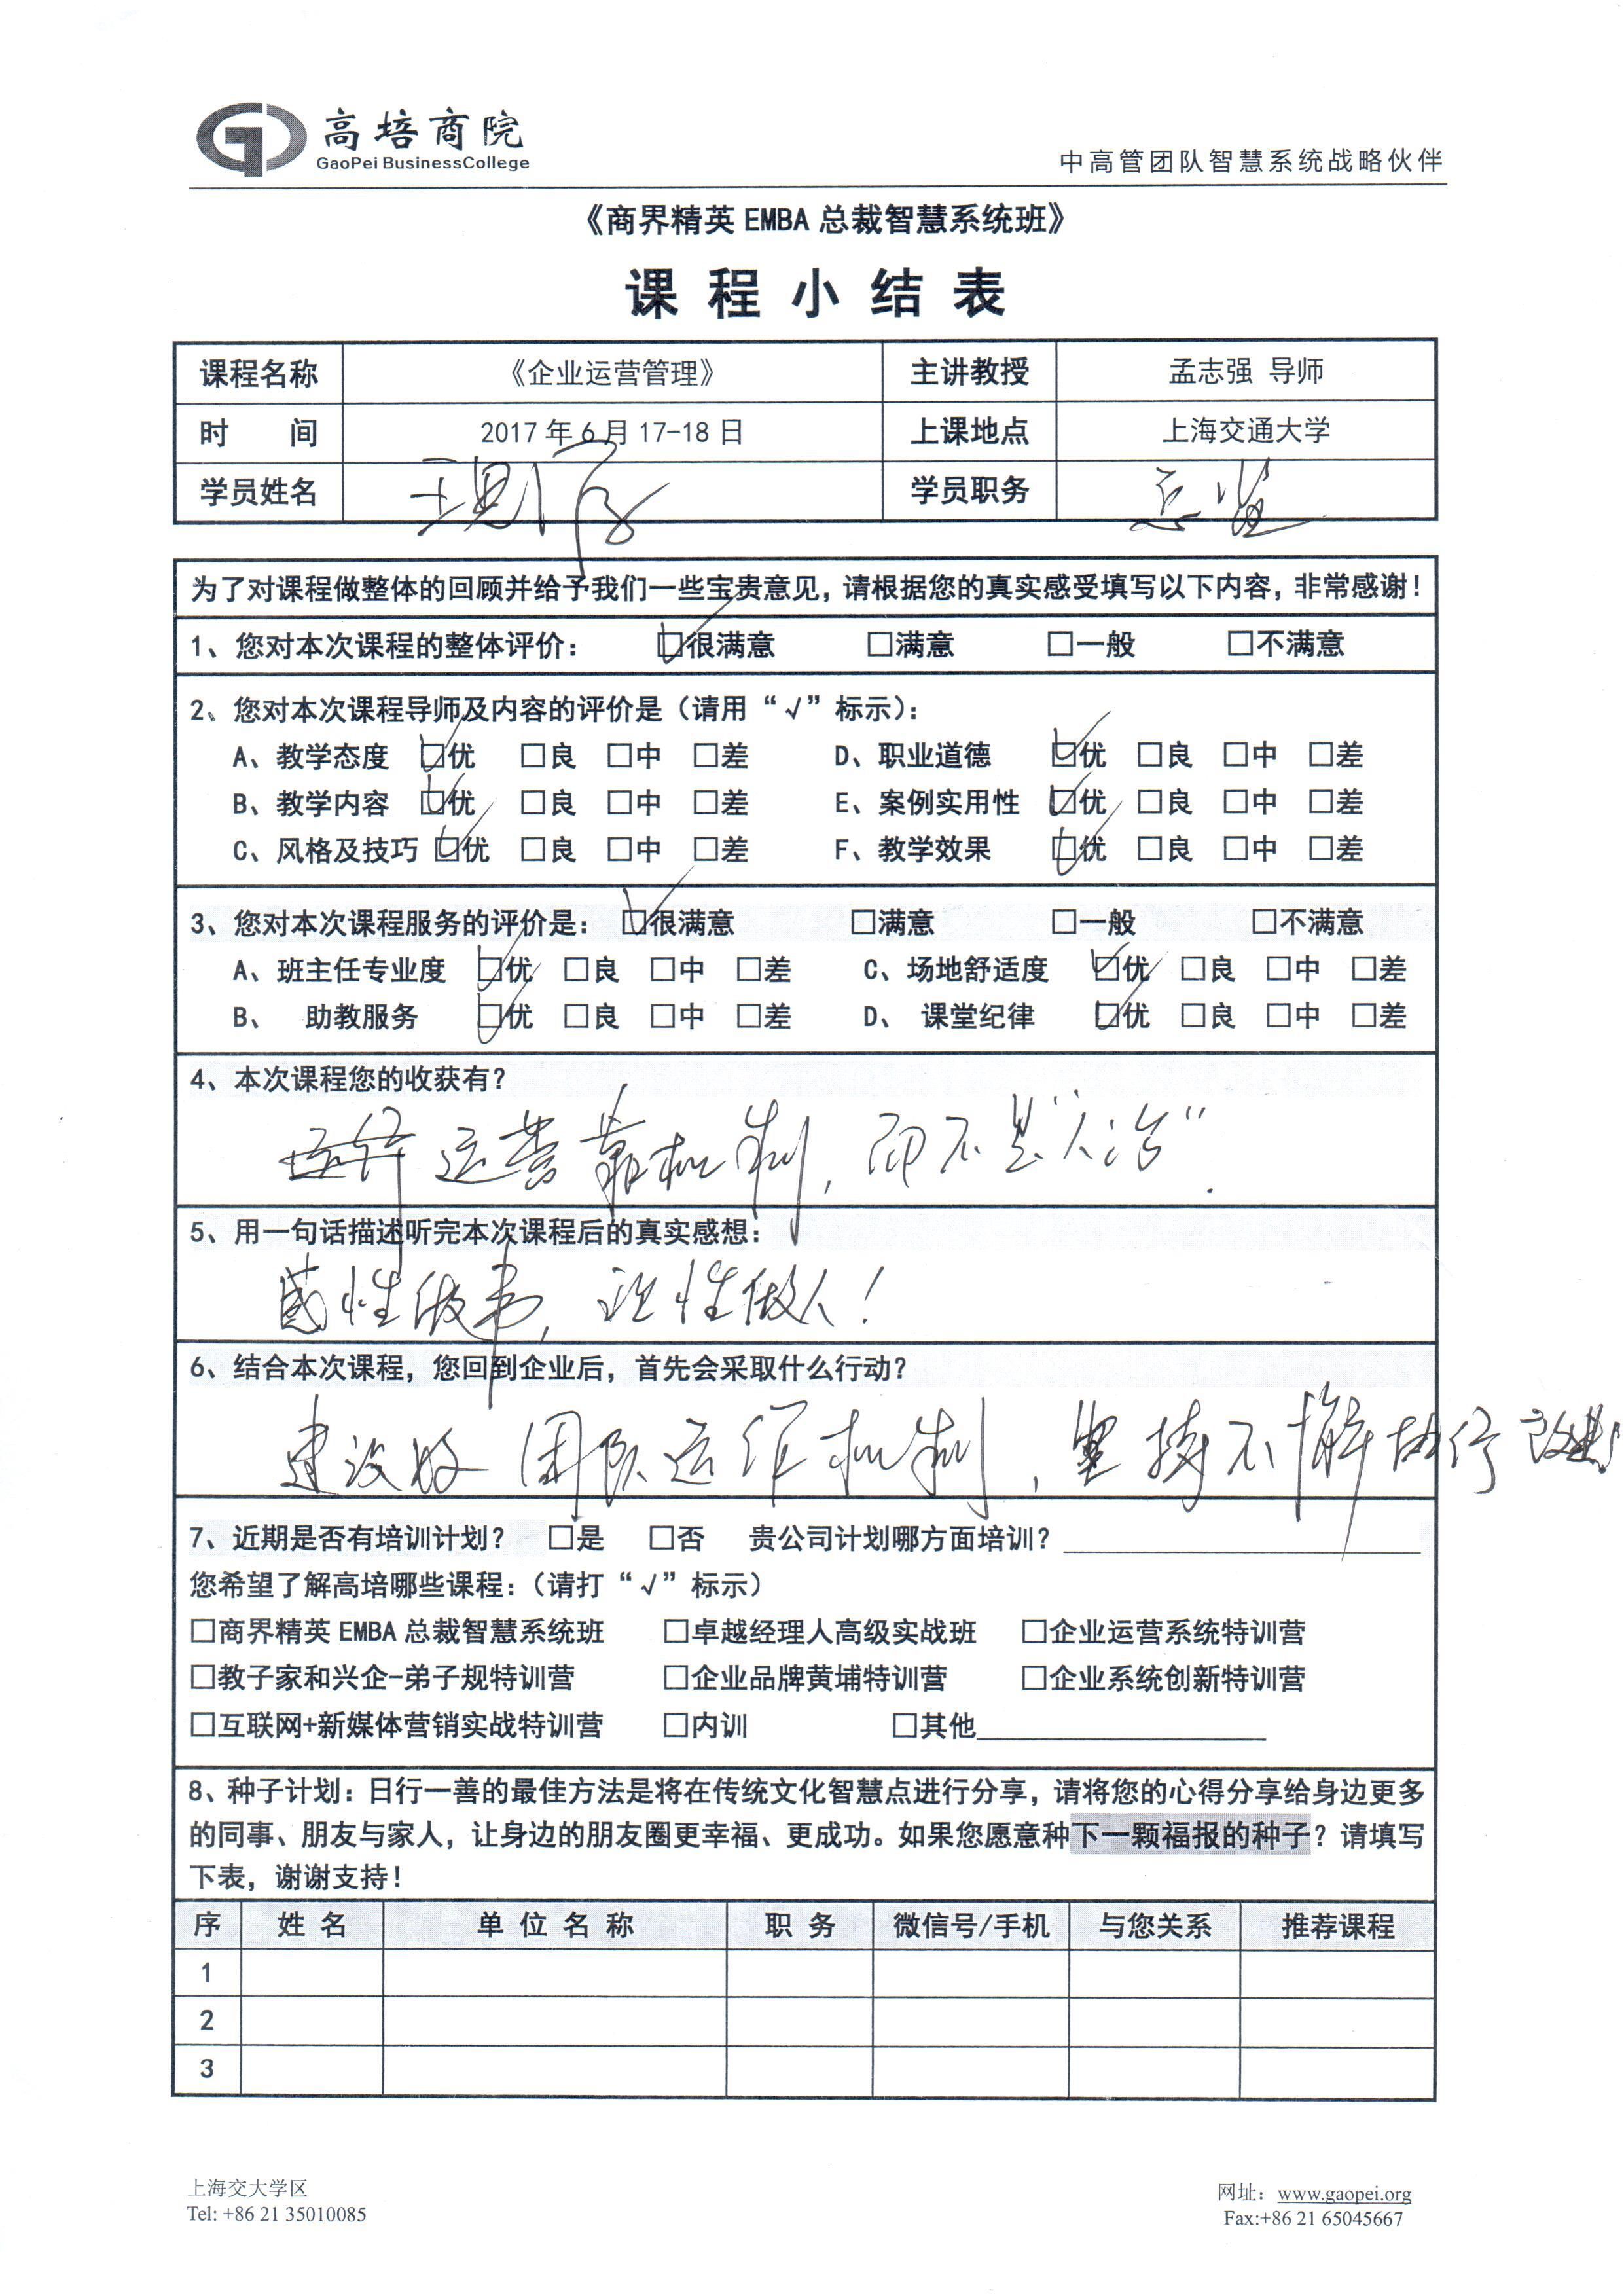 高培商院
GaoPei BusinessCollege
中高管团队智慧系统战略伙伴
《商界精英 EMBA 总裁智慧系统班》
课 程 小 结 表
课程名称 《企业运营管理》 主讲教授 孟志强 导师
时 间 2017 年 6 月 17-18 日 上课地点 上海交通大学
学员姓名 学员职务 总监
为了对课程做整体的回顾并给予我们一些宝贵意见，请根据您的真实感受填写以下内容，非常感谢！
1、您对本次课程的整体评价： ☑很满意 □满意 □一般 □不满意
2、您对本次课程导师及内容的评价是（请用“√”标示）：
A、教学态度 ☑优 □良 □中 □差 D、职业道德 ☑优 □良 □中 □差
B、教学内容 ☑优 □良 □中 □差 E、案例实用性 ☑优 □良 □中 □差
C、风格及技巧 ☑优 □良 □中 □差 F、教学效果 ☑优 □良 □中 □差
3、您对本次课程服务的评价是： ☑很满意 □满意 □一般 □不满意
A、班主任专业度 ☑优 □良 □中 □差 C、场地舒适度 ☑优 □良 □中 □差
B、 助教服务 ☑优 □良 □中 □差 D、 课堂纪律 ☑优 □良 □中 □差
4、本次课程您的收获有？
运营靠机制，而不是“人治”.
5、用一句话描述听完本次课程后的真实感想：
感性做事，理性做人！
6、结合本次课程，您回到企业后，首先会采取什么行动？
建设好团队运作机制，坚持不懈执行
7、近期是否有培训计划？ □是 □否 贵公司计划哪方面培训？
您希望了解高培哪些课程：（请打“√”标示）
□商界精英 EMBA 总裁智慧系统班 □卓越经理人高级实战班 □企业运营系统特训营
□教子家和兴企-弟子规特训营 □企业品牌黄埔特训营 □企业系统创新特训营
□互联网+新媒体营销实战特训营 □内训 □其他
8、种子计划：日行一善的最佳方法是将在传统文化智慧点进行分享，请将您的心得分享给身边更多
的同事、朋友与家人，让身边的朋友圈更幸福、更成功。如果您愿意种下一颗福报的种子？请填写
下表，谢谢支持！
序 姓 名 单 位 名 称 职 务 微信号/手机 与您关系 推荐课程
1
2
3
上海交大学区
Tel: +86 21 35010085
网址：www.gaopei.org
Fax:+86 21 65045667